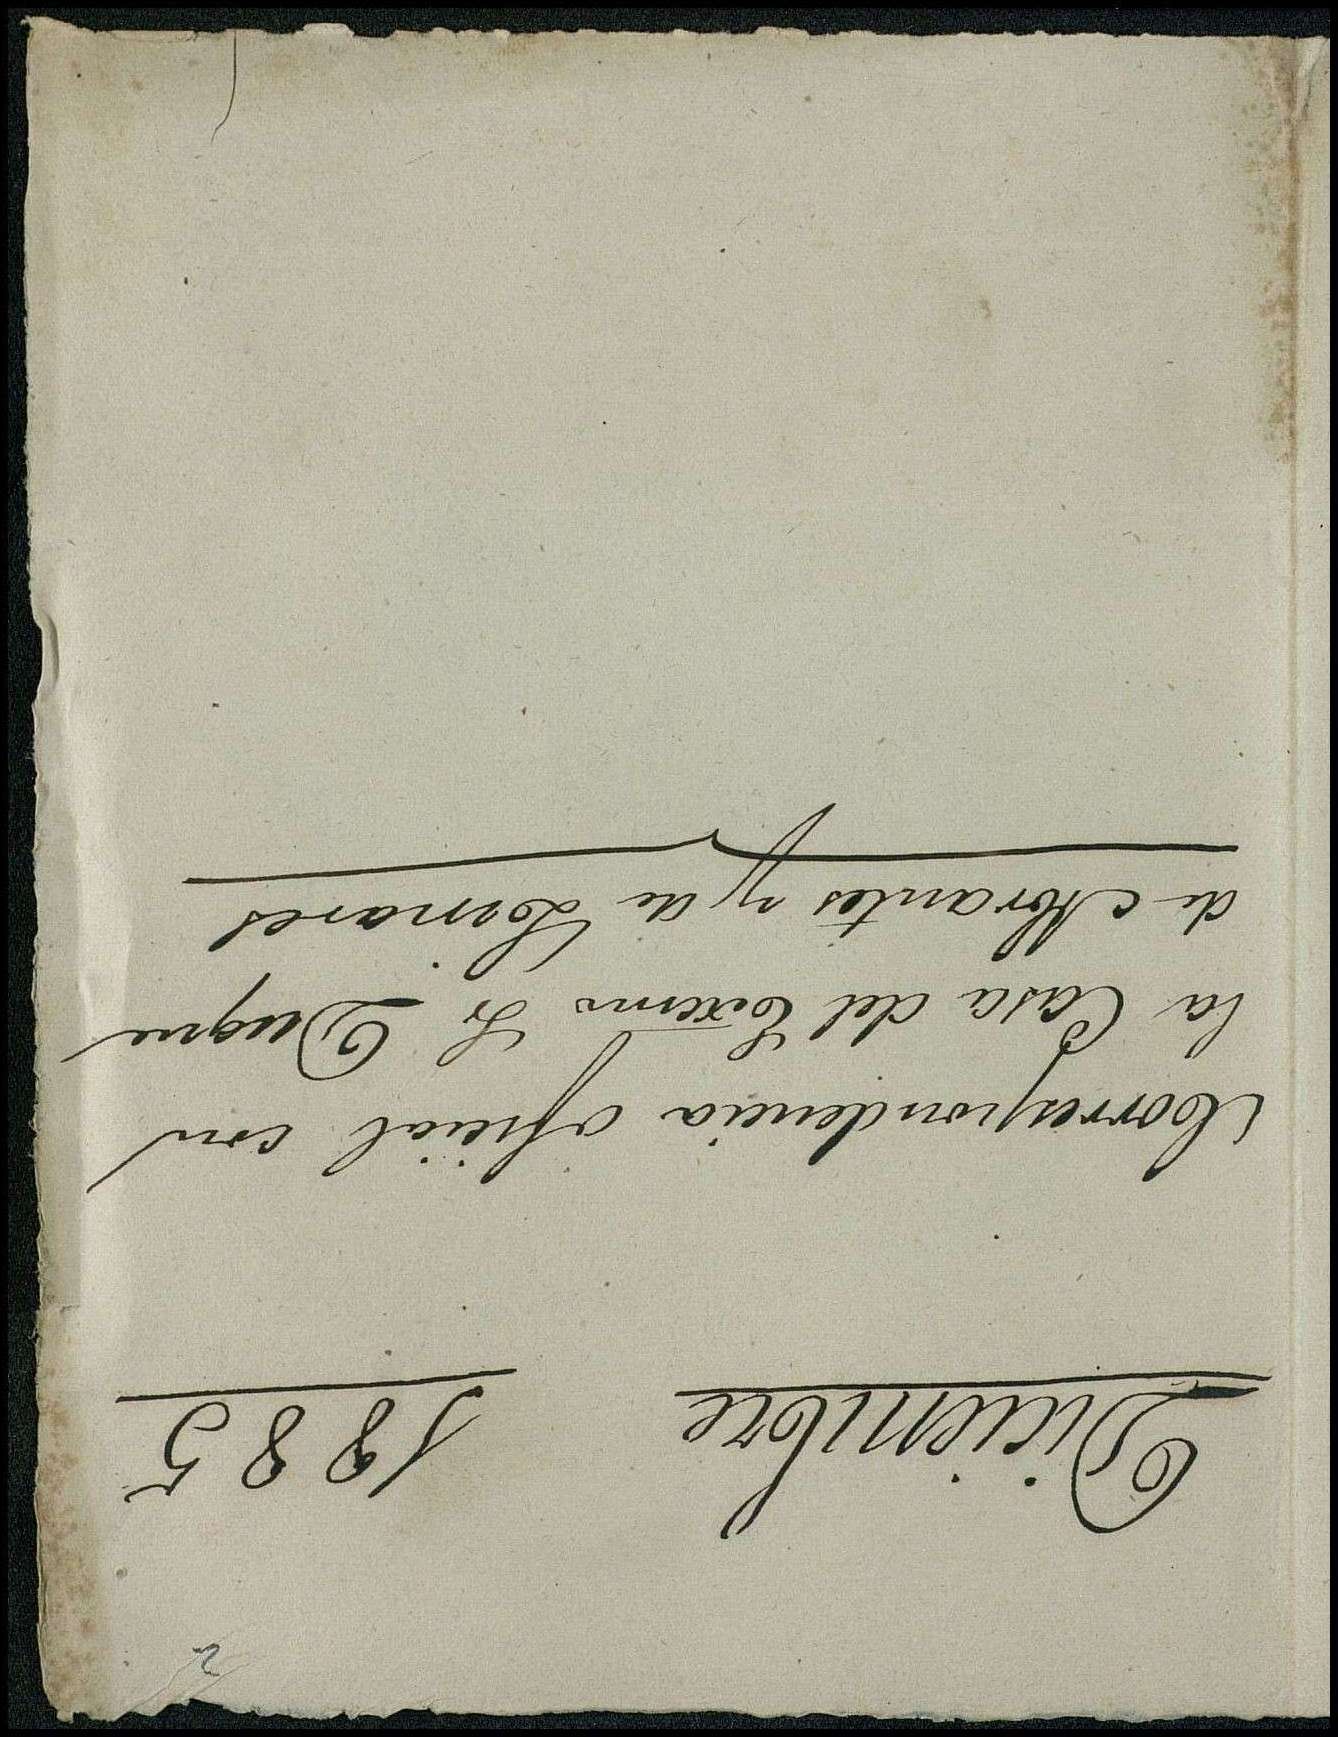 Diciembre 1885
Correspondencia oficial con
la Casa del Excmo Sr Duque
de Abrantes y de Linares